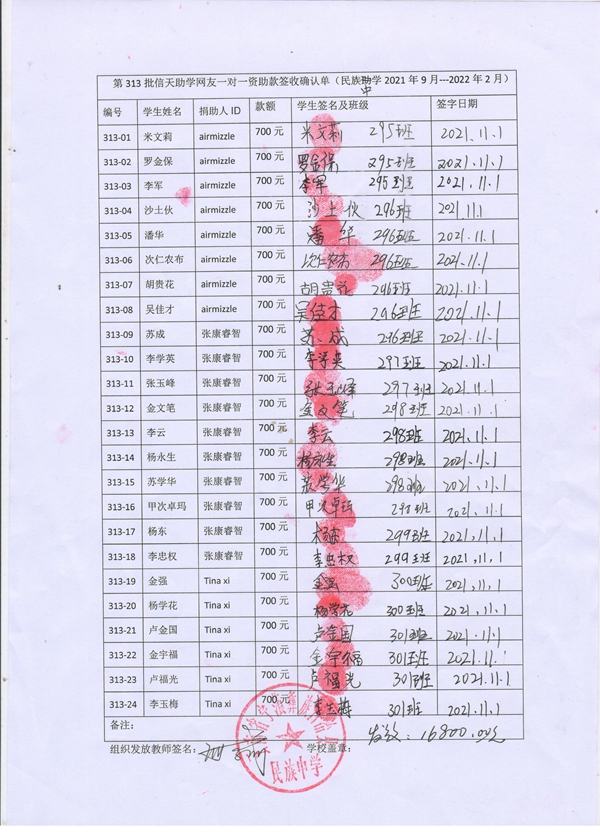 第 313 批信天助学网友一对一资助款签收确认单（民族中学 2021 年 9 月---2022 年 2 月）
编号 学生姓名 捐助人 ID 款额 学生签名及班级 签字日期
313-01 米文莉 airmizzle 700 元 米文莉 295班 2021.11.1
313-02 罗金保 airmizzle 700 元 罗金保 295班 2021.11.1
313-03 李军 airmizzle 700 元 李军 295班 2021.11.1
313-04 沙土伙 airmizzle 700 元 沙土伙 296班 2021.11.1
313-05 潘华 airmizzle 700 元 潘华 296班 2021.11.1
313-06 次仁农布 airmizzle 700 元 次仁农布 296班 2021.11.1
313-07 胡贵花 airmizzle 700 元 胡贵花 296班 2021.11.1
313-08 吴佳才 airmizzle 700 元 吴佳才 296班 2021.11.1
313-09 苏成 张康睿智 700 元 苏成 296班 2021.11.1
313-10 李学英 张康睿智 700 元 李学英 297班 2021.11.1
313-11 张玉峰 张康睿智 700 元 张玉峰 297班 2021.11.1
313-12 金文笔 张康睿智 700 元 金文笔 298班 2021.11.1
313-13 李云 张康睿智 700 元 李云 298班 2021.11.1
313-14 杨永生 张康睿智 700 元 杨永生 298班 2021.11.1
313-15 苏学华 张康睿智 700 元 苏学华 298班 2021.11.1
313-16 甲次卓玛 张康睿智 700 元 甲次卓玛 298班 2021.11.1
313-17 杨东 张康睿智 700 元 杨东 299班 2021.11.1
313-18 李忠权 张康睿智 700 元 李忠权 299班 2021.11.1
313-19 金强 Tina xi 700 元 金强 300班 2021.11.1
313-20 杨学花 Tina xi 700 元 杨学花 300班 2021.11.1
313-21 卢金国 Tina xi 700 元 卢金国 301班 2021.11.1
313-22 金宇福 Tina xi 700 元 金宇福 301班 2021.11.1
313-23 卢福光 Tina xi 700 元 卢福光 301班 2021.11.1
313-24 李玉梅 Tina xi 700 元 李玉梅 301班 2021.11.1
备注： 16800.00元
组织发放教师签名： 学校盖章：
民族中学